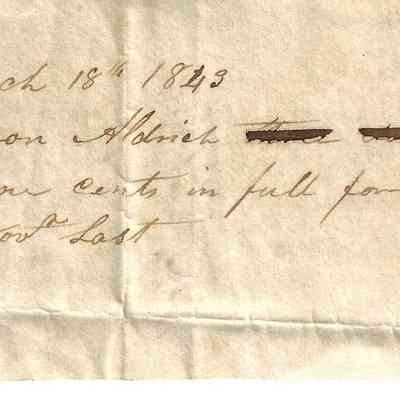 ch 18th 1843
on Aldrich
ne cents in full for
ovr Last